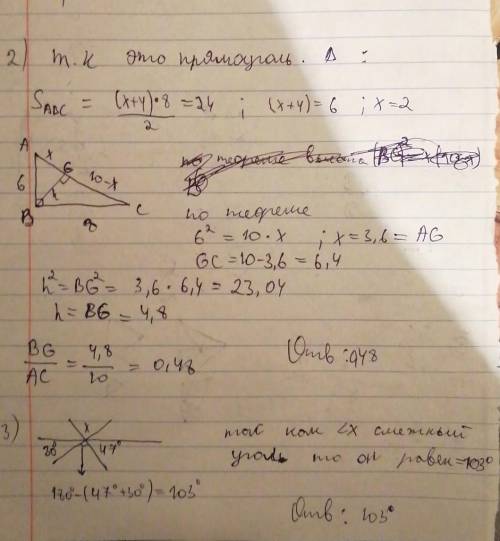 2) т.к это прямоуголь. Δ :
S_ABC = (x+4)·8/2 = 24 ; (x+4) = 6 ; x = 2
A
x
G
6
10-x
B
8
C
по теореме
6² = 10·x ; x = 3,6 = AG
GC = 10-3,6 = 6,4
h² = BG² = 3,6·6,4 = 23,04
h = BG = 4,8
BG/AC = 4,8/10 = 0,48
Отв: 0,48
3)
x
30°
47°
так ком ∠x смежный
угол то он равен = 103°
180° - (47°+30°) = 103°
Отв: 103°